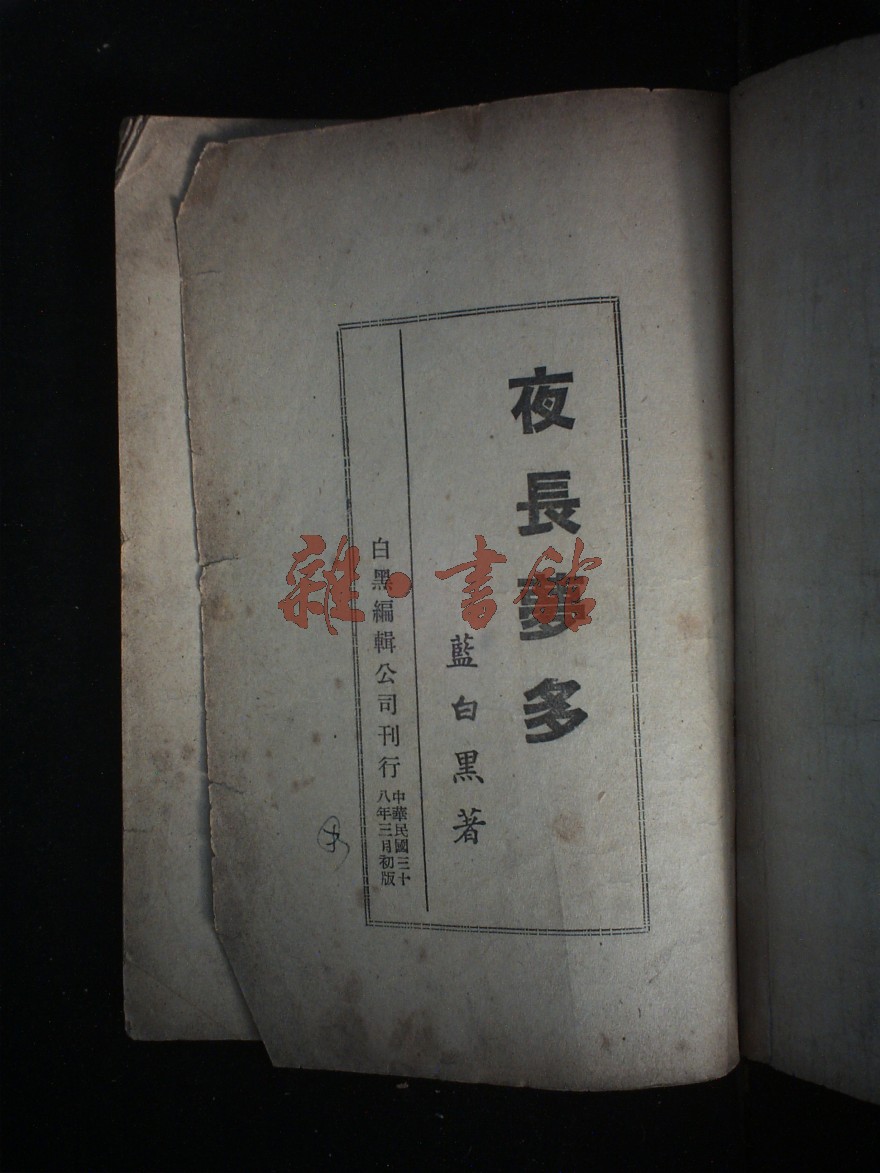 夜長夢多
藍白黑著
白黑編輯公司刊行
中華民國三十
八年三月初版
雜·書館